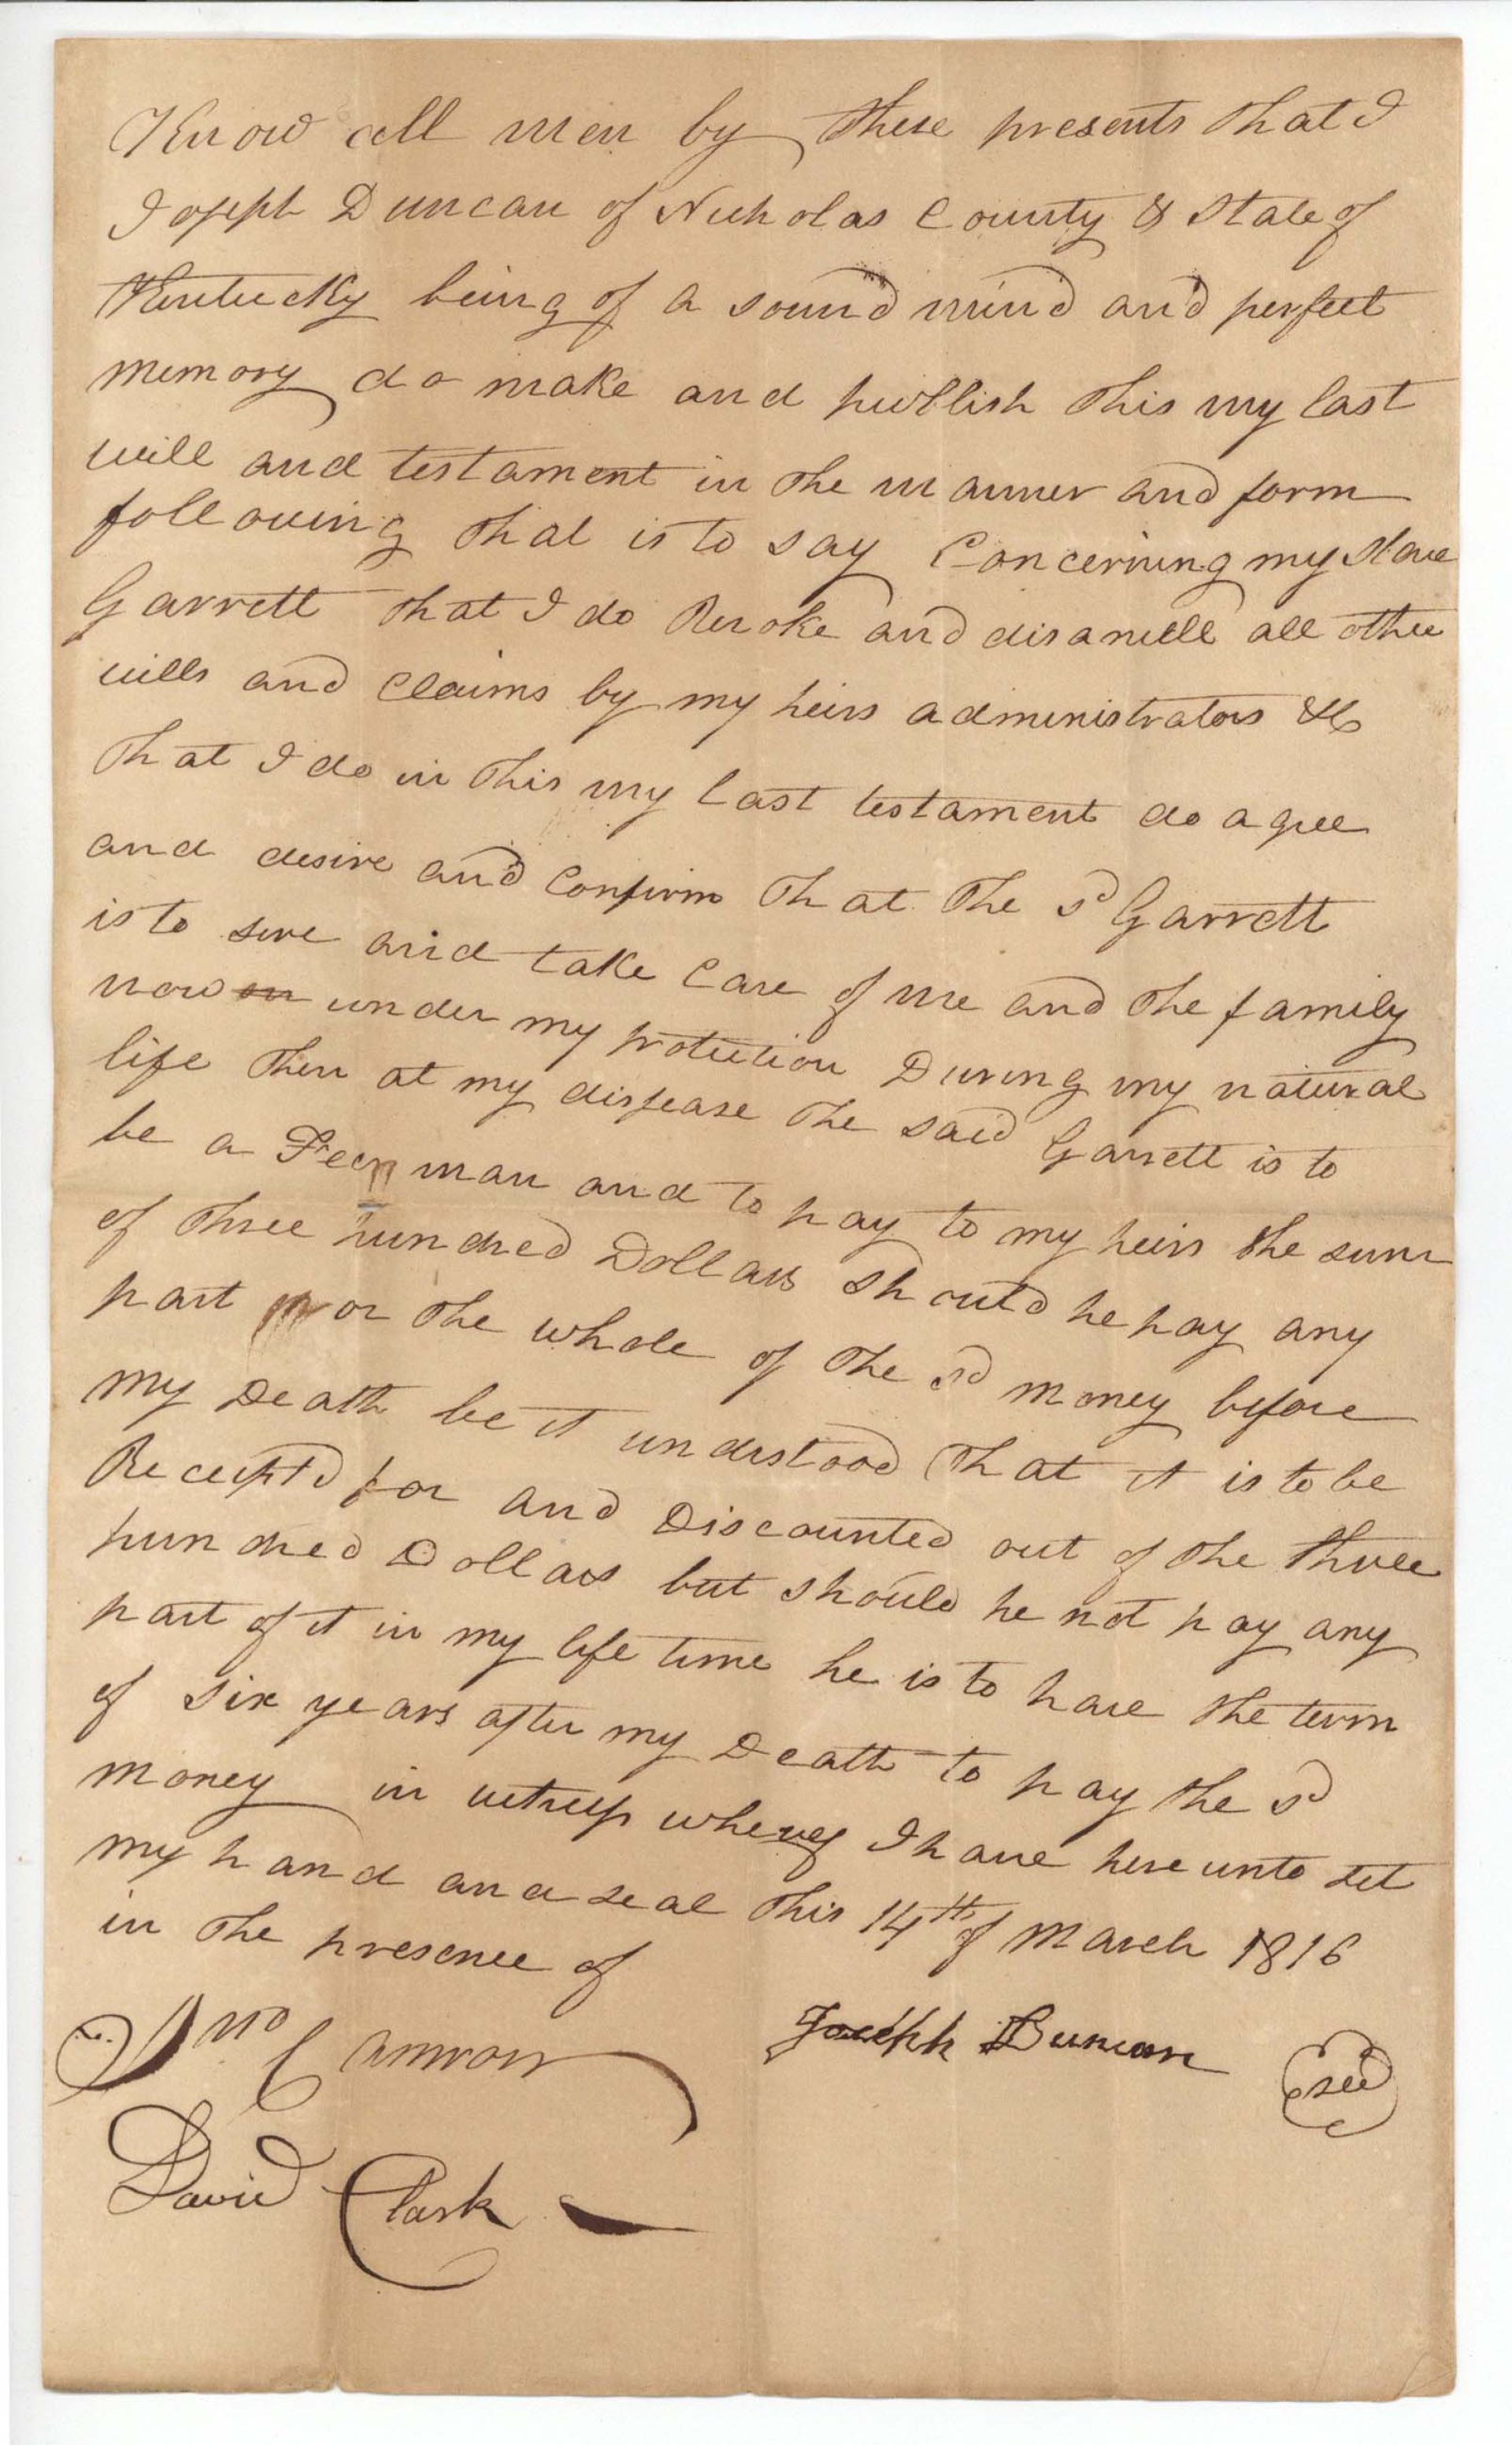 Know all men by these presents that I
Joseph Duncan of Nicholas County & State of
Kentucky being of a sound mind and perfect
memory do make and publish this my last
will and testament in the manner and form
following that is to say Concerning my Slave
Garrett that I do Revoke and disanull all other
wills and Claims by my heirs administrators &c
that I do in this my last testament do agree
and desire and Confirm that the sd Garrett
is to serve and take Care of me and the family
now on under my protection During my natural
life then at my disscease the said Garrett is to
be a Freeman and to pay to my heirs the sum
of three hundred Dollars should he pay any
part or the whole of the sd money before
my Death be it understood that it is to be
Receiptd for and Discounted out of the three
hundred Dollars but should he not pay any
part of it in my life time he is to have the term
of six years after my Death to pay the sd
money in witness whereof I have hereunto set
my hand and seal this 14th of March 1816
in the presence of
Jno Camron
Joseph Duncan
David Clark